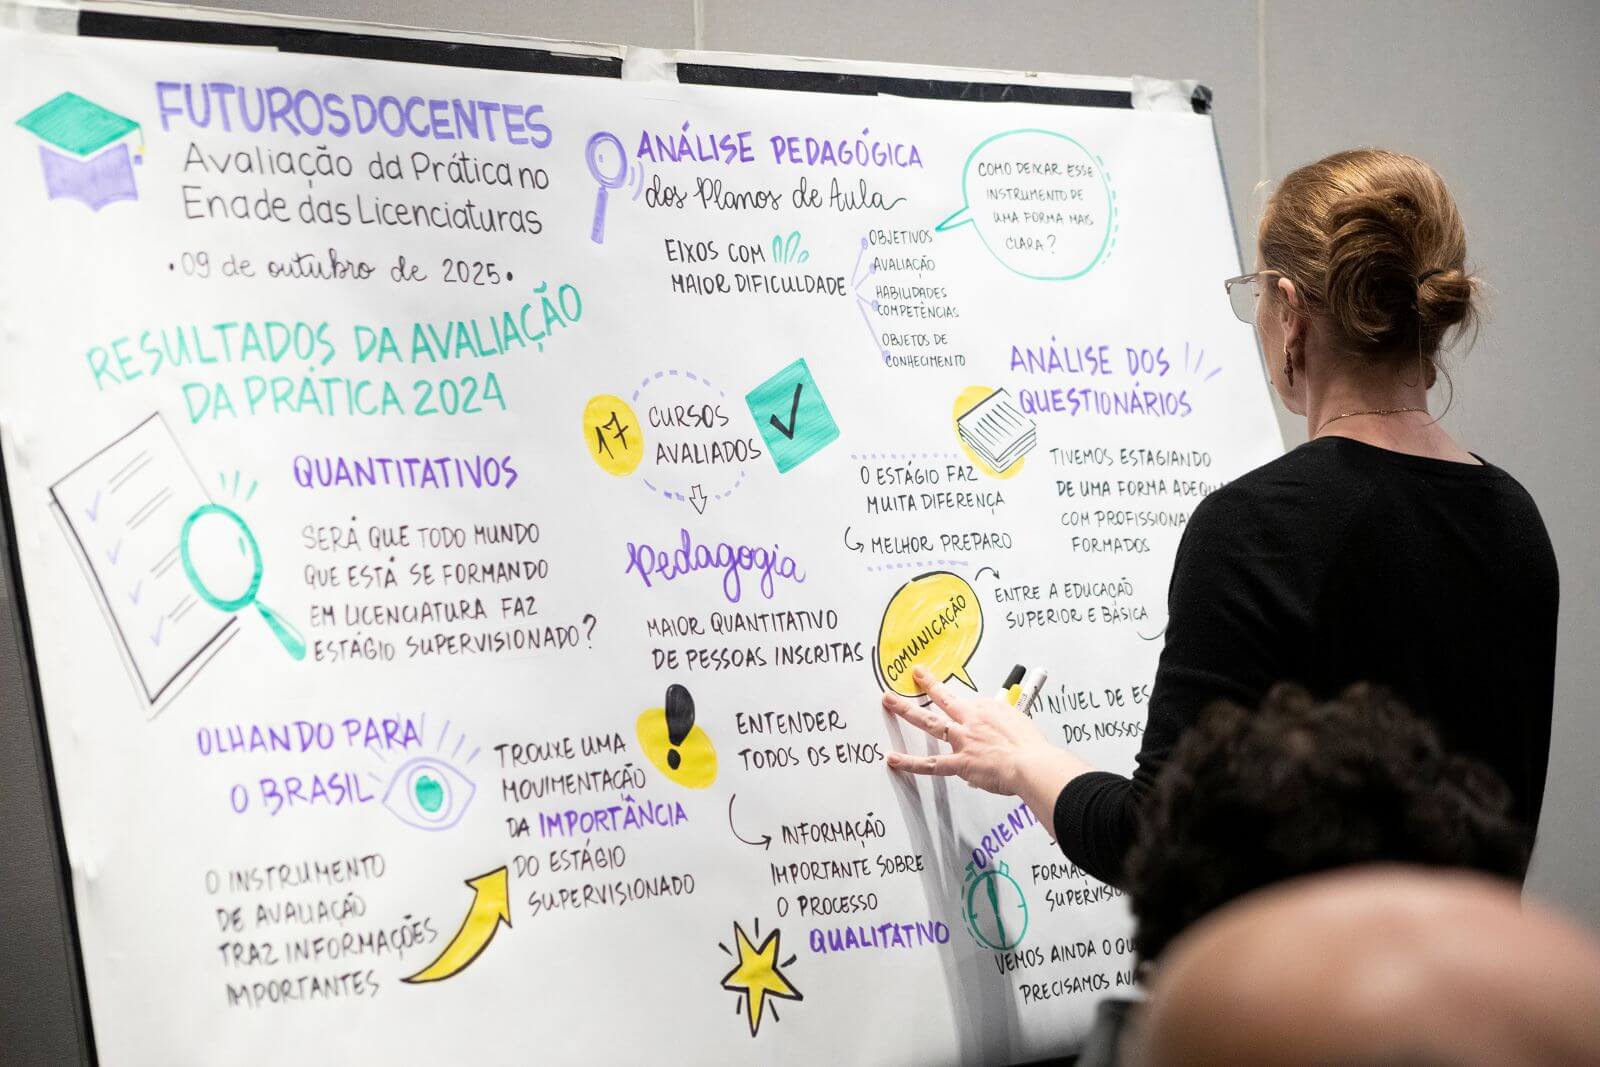 FUTUROS DOCENTES
Avaliação da Prática no
Enade das Licenciaturas
• 09 de outubro de 2025 •
RESULTADOS DA AVALIAÇÃO
DA PRÁTICA 2024
QUANTITATIVOS
SERÁ QUE TODO MUNDO
QUE ESTÁ SE FORMANDO
EM LICENCIATURA FAZ
ESTÁGIO SUPERVISIONADO?
OLHANDO PARA
O BRASIL
O INSTRUMENTO
DE AVALIAÇÃO
TRAZ INFORMAÇÕES
IMPORTANTES
TROUXE UMA
MOVIMENTAÇÃO
DA IMPORTÂNCIA
DO ESTÁGIO
SUPERVISIONADO
ANÁLISE PEDAGÓGICA
dos Planos de Aula
EIXOS COM
MAIOR DIFICULDADE
OBJETIVOS
AVALIAÇÃO
HABILIDADES
COMPETÊNCIAS
OBJETOS DE
CONHECIMENTO
COMO DEIXAR ESSE
INSTRUMENTO DE
UMA FORMA MAIS
CLARA?
17
CURSOS
AVALIADOS
Pedagogia
MAIOR QUANTITATIVO
DE PESSOAS INSCRITAS
ENTENDER
TODOS OS EIXOS
INFORMAÇÃO
IMPORTANTE SOBRE
O PROCESSO
QUALITATIVO
ANÁLISE DOS
QUESTIONÁRIOS
O ESTÁGIO FAZ
MUITA DIFERENÇA
MELHOR PREPARO
TIVEMOS ESTAGIANDO
DE UMA FORMA
COM
FORMADOS
COMUNICAÇÃO
ENTRE A EDUCAÇÃO
SUPERIOR E BÁSICA
NÍVEL DE
DOS NOSSOS
VEMOS AINDA O
PRECISAMOS